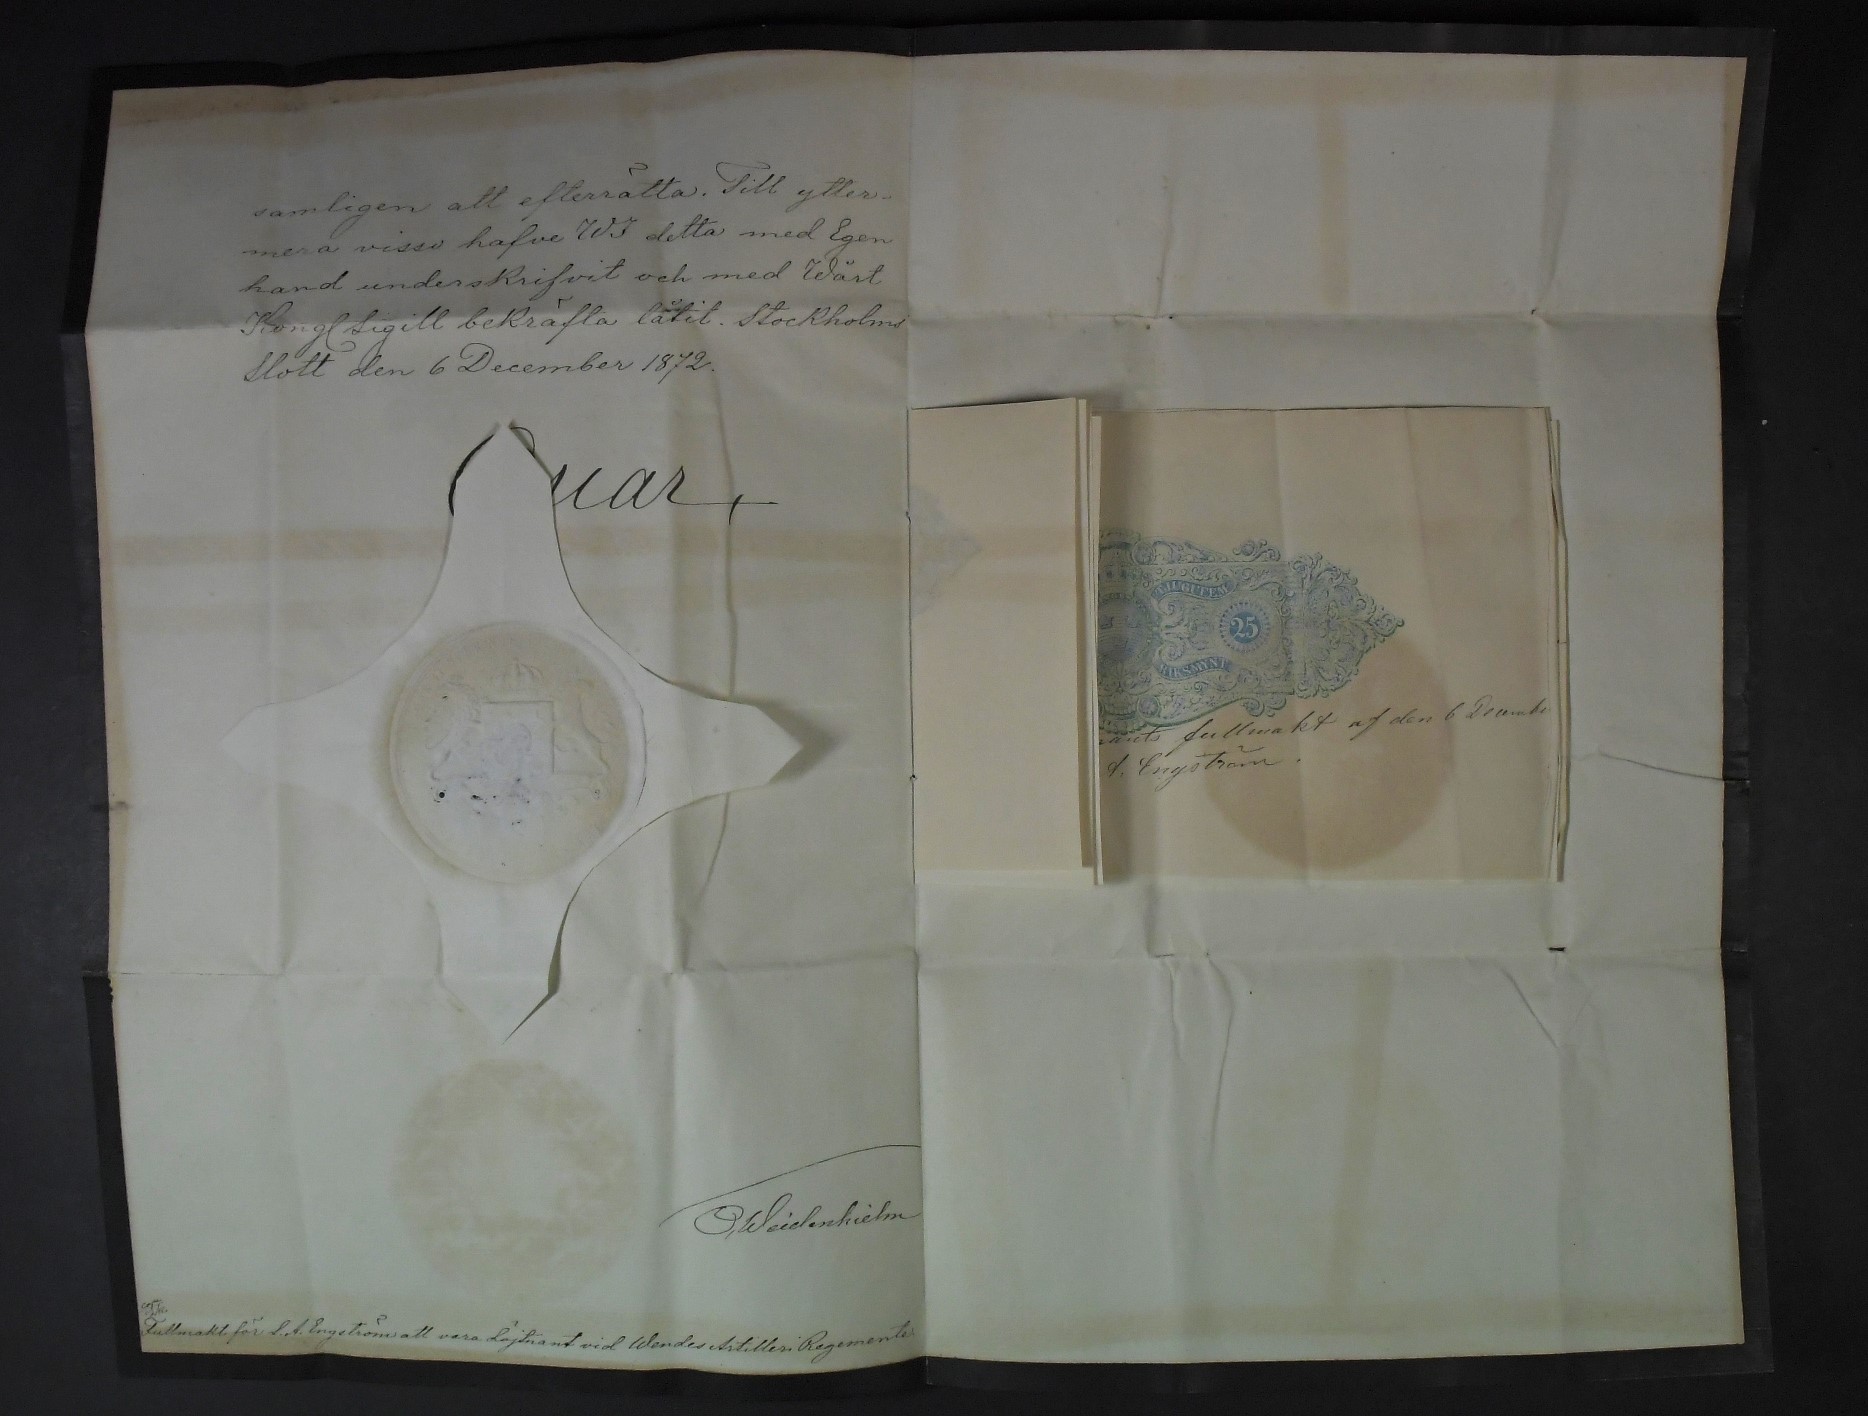 samligen att efterrätta. Till ytter-
mera visso hafve WJ detta med Egen
hand underskrifvit och med Wårt
Kongl Sigill bekräfta låtit. Stockholms
Slott den 6 December 1872.
RIKSMYNT
25
fullmakt af den 6 Decembe
A. Engström.
O, Weidenhielm
Fullmakt för L. A. Engström att vara Löjtnant vid Wendes Artilleri Regemente